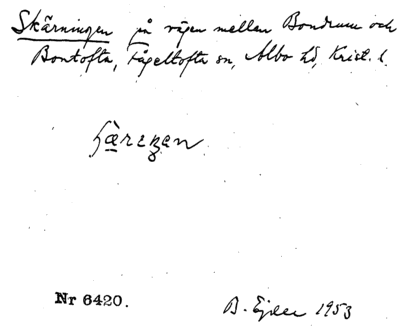 Skärningen på vägen mellan Bondrum och
Bontofta, Fågeltofta sn, Albo hd, Krist. l.
Nr 6420.
B. Ejder 1953